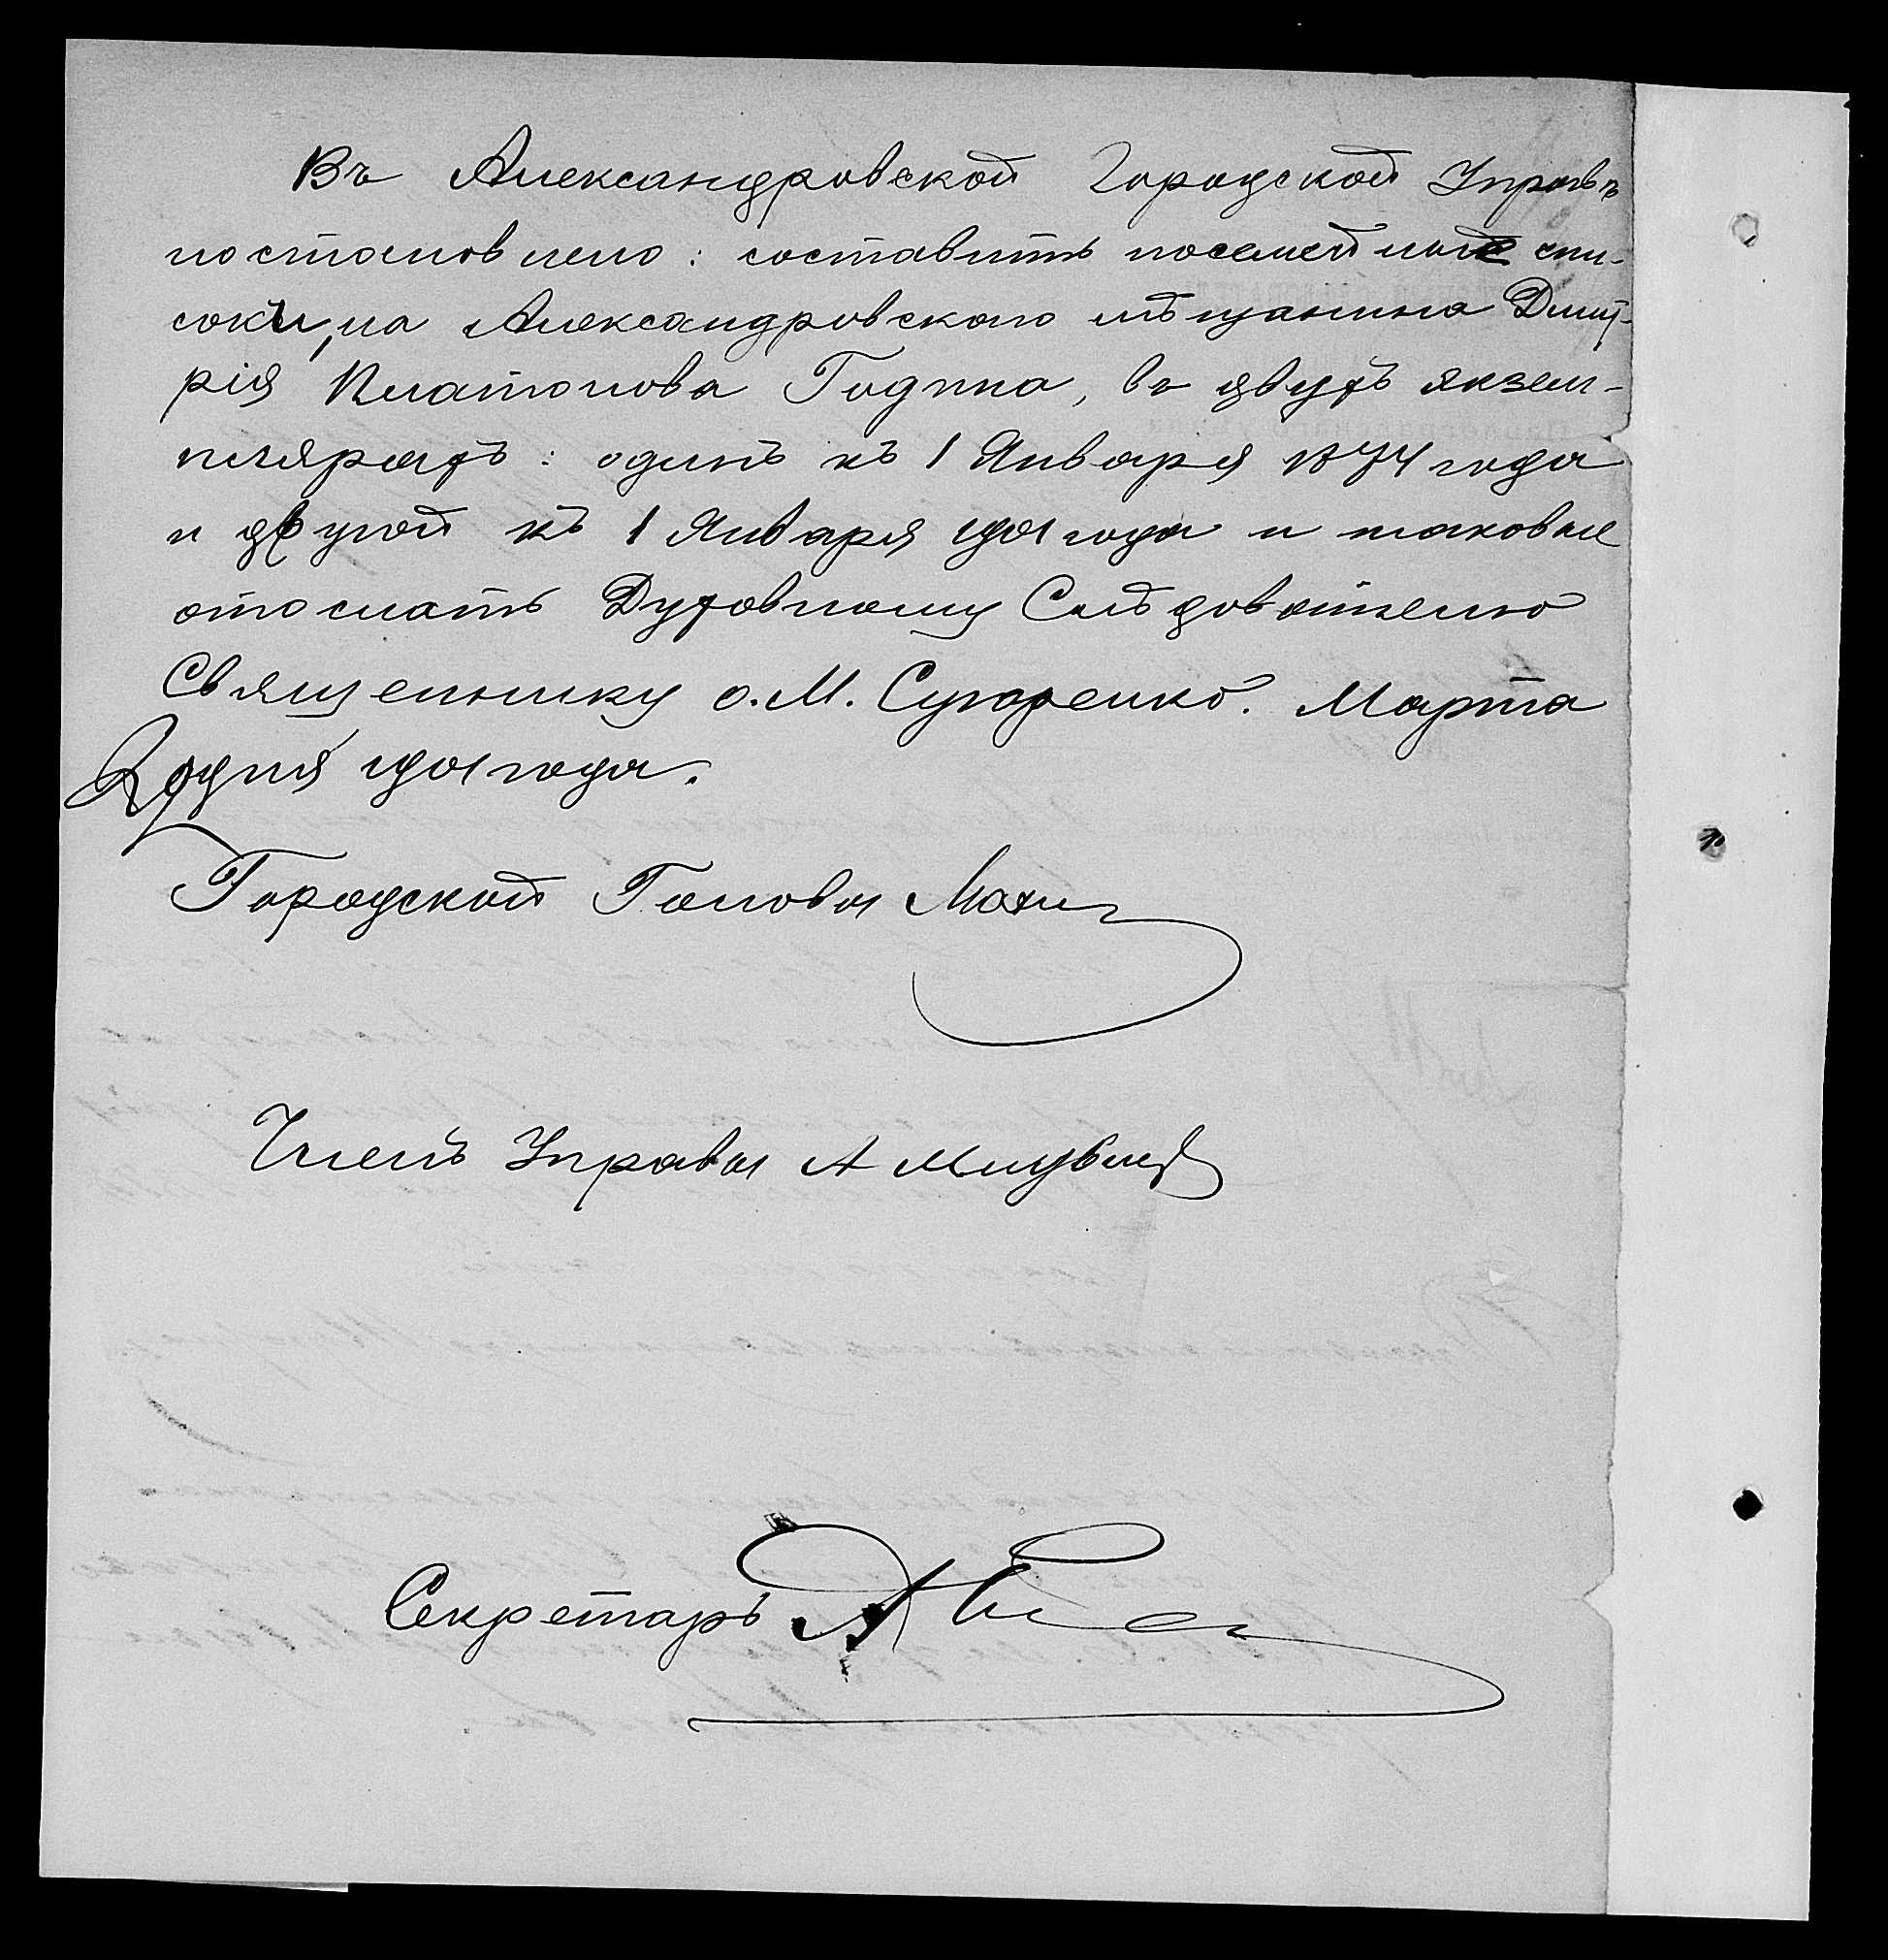 Въ Александровской Городской Управѣ
постановлено: составить посемейные спи-
ски, на Александровскаго мѣщанина Дмит-
рія Платонова Година, въ двухъ экзем-
плярахъ: одинъ къ 1 Января 1874 года
и другой къ 1 Января 1901 года и таковые
отослать Духовному Слѣдователю
Священнику о. М. Сухаренко. Марта
дня 1901 года.
Городской Голова
Членъ Управы А
Секретарь А